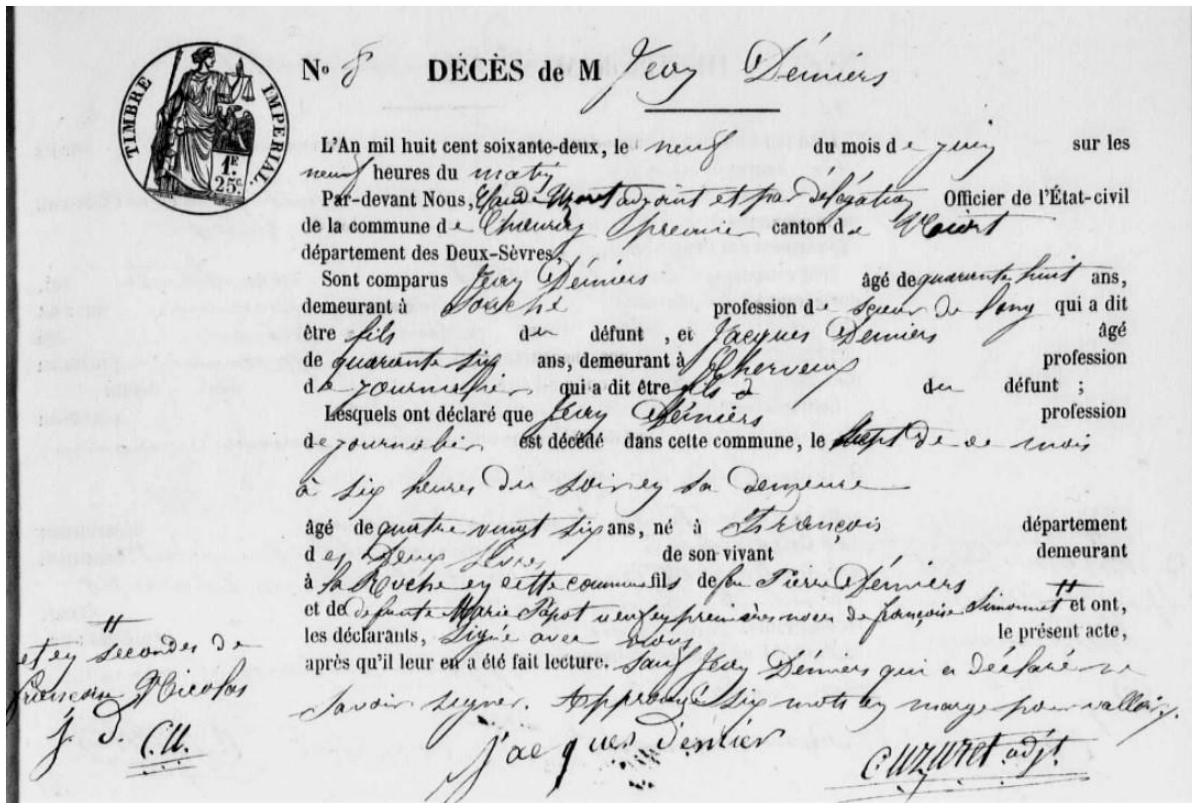 TIMBRE IMPÉRIAL.
1F. 25c.
No 8 DÉCÈS de M Jean Déniers
L'An mil huit cent soixante-deux, le neuf du mois de juin sur les
neuf heures du matin
Par-devant Nous, adjoint et par délégation Officier de l'État-civil
de la commune de premier canton de Niort
département des Deux-Sèvres,
Sont comparus Jean Déniers âgé de quarante huit ans,
demeurant à Souché profession de scieur de long qui a dit
être fils du défunt, et Jacques Deniers âgé
de quarante six ans, demeurant à Cherveux profession
de journalier qui a dit être fils du défunt ;
Lesquels ont déclaré que Jean Déniers profession
de journalier est décédé dans cette commune, le sept de ce mois
à six heures du soir en sa demeure
âgé de quatre vingt six ans, né à François département
des Deux Sèvres de son vivant demeurant
à la Roche en cette commune fils de feu Pierre Déniers
et de défunte Marie Papot veuf en premières noces de françoise Simonnet # et ont,
les déclarants, signé avec nous le présent acte,
après qu'il leur en a été fait lecture. Sauf Jean Déniers qui a déclaré ne
savoir signer. Approuvé six mots en marge pour valloir.
# et en secondes de
francoise Nicolas
J. D. C.U.
jacques dénier
Cuzuret adjt.